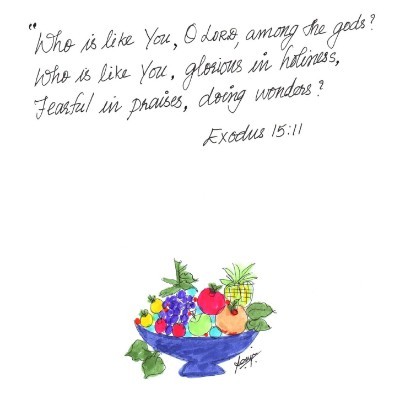 "Who is like You, O LORD, among the gods?
Who is like You, glorious in holiness,
Fearful in praises, doing wonders?
Exodus 15:11